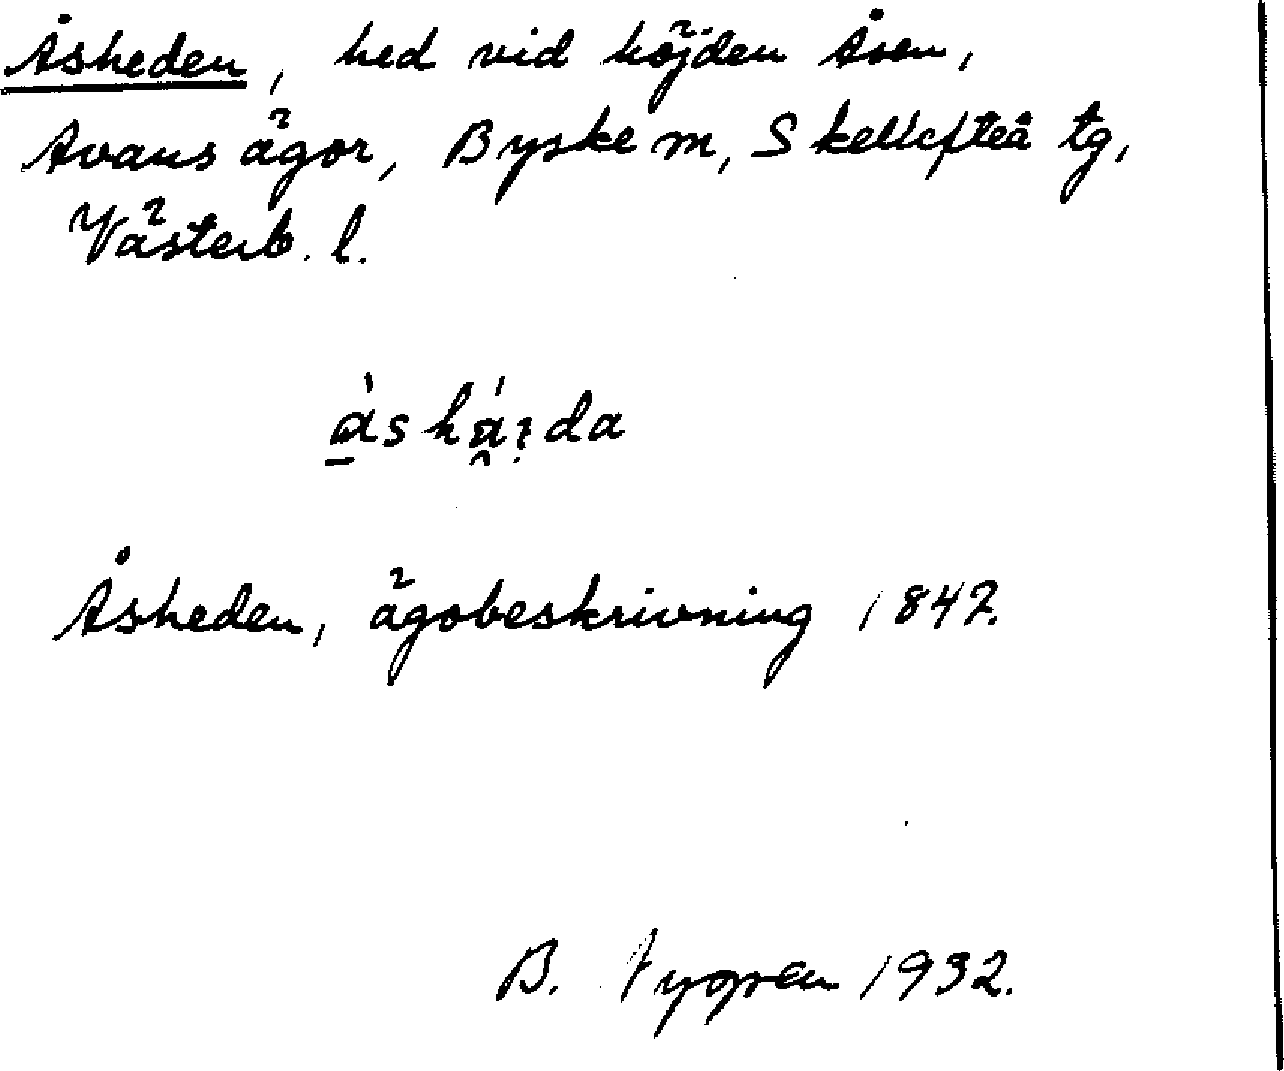 Åsheden, hed vid höjden Åsen,
Avans ägor, Byske sn, Skellefteå tg,
Västerb. l.
Åsheden, ägobeskrivning 1842.
B. Nygren 1932.